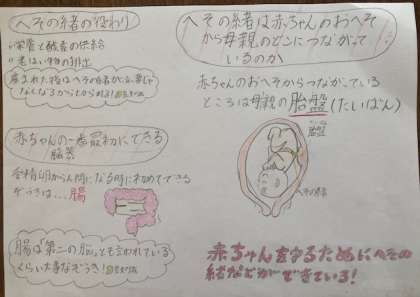 へその緒の役わり
・栄養と酸素の供給
・老はい物の排出
産まれた後はへその緒が必要じゃ
なくなるからとられる!
赤ちゃんの一番最初にできる
臓器
受精卵から人間になる時に初めてできる
ぞうきは…腸
腸は「第二の脳」とも言われている
くらい大事なぞうき!
へその緒は赤ちゃんのおへそ
から母親のどこにつながって
いるのか
赤ちゃんのおへそからつながっている
ところは母親の胎盤(たいばん)
胎盤
へその緒
赤ちゃんを守るためにへその
緒などができている!